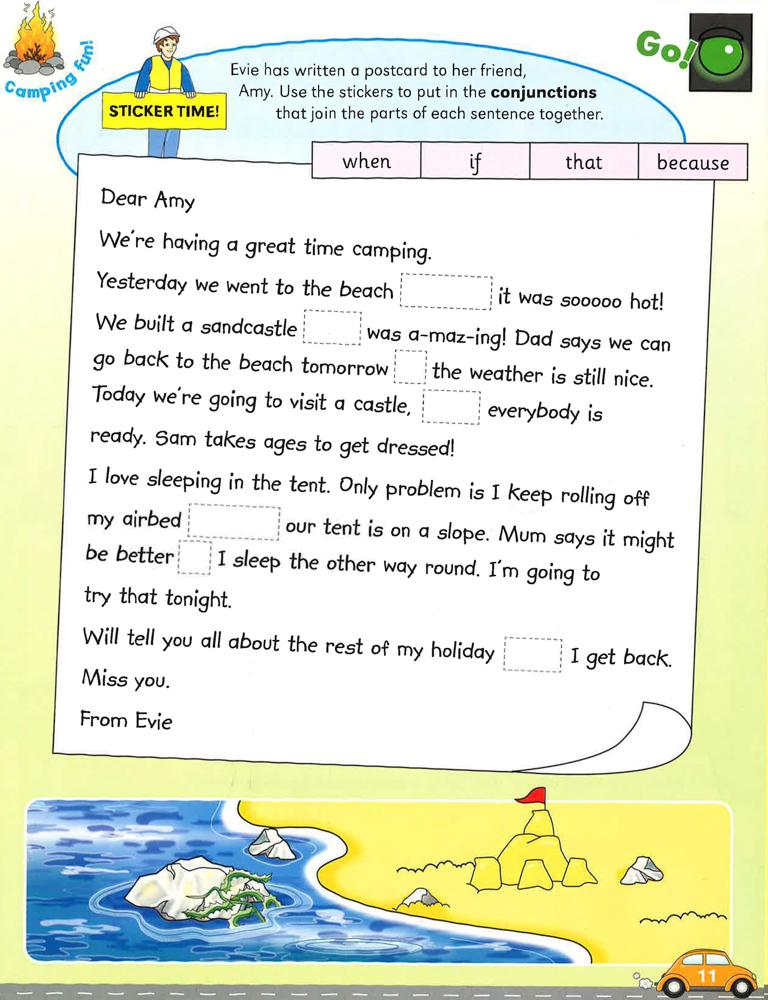 Camping fun!
Go!
STICKER TIME!
Evie has written a postcard to her friend,
Amy. Use the stickers to put in the conjunctions
that join the parts of each sentence together.
when if that because
Dear Amy
We're having a great time camping.
Yesterday we went to the beach it was sooooo hot!
We built a sandcastle was a-maz-ing! Dad says we can
go back to the beach tomorrow the weather is still nice.
Today we're going to visit a castle, everybody is
ready. Sam takes ages to get dressed!
I love sleeping in the tent. Only problem is I keep rolling off
my airbed our tent is on a slope. Mum says it might
be better I sleep the other way round. I'm going to
try that tonight.
Will tell you all about the rest of my holiday I get back.
Miss you.
From Evie
11